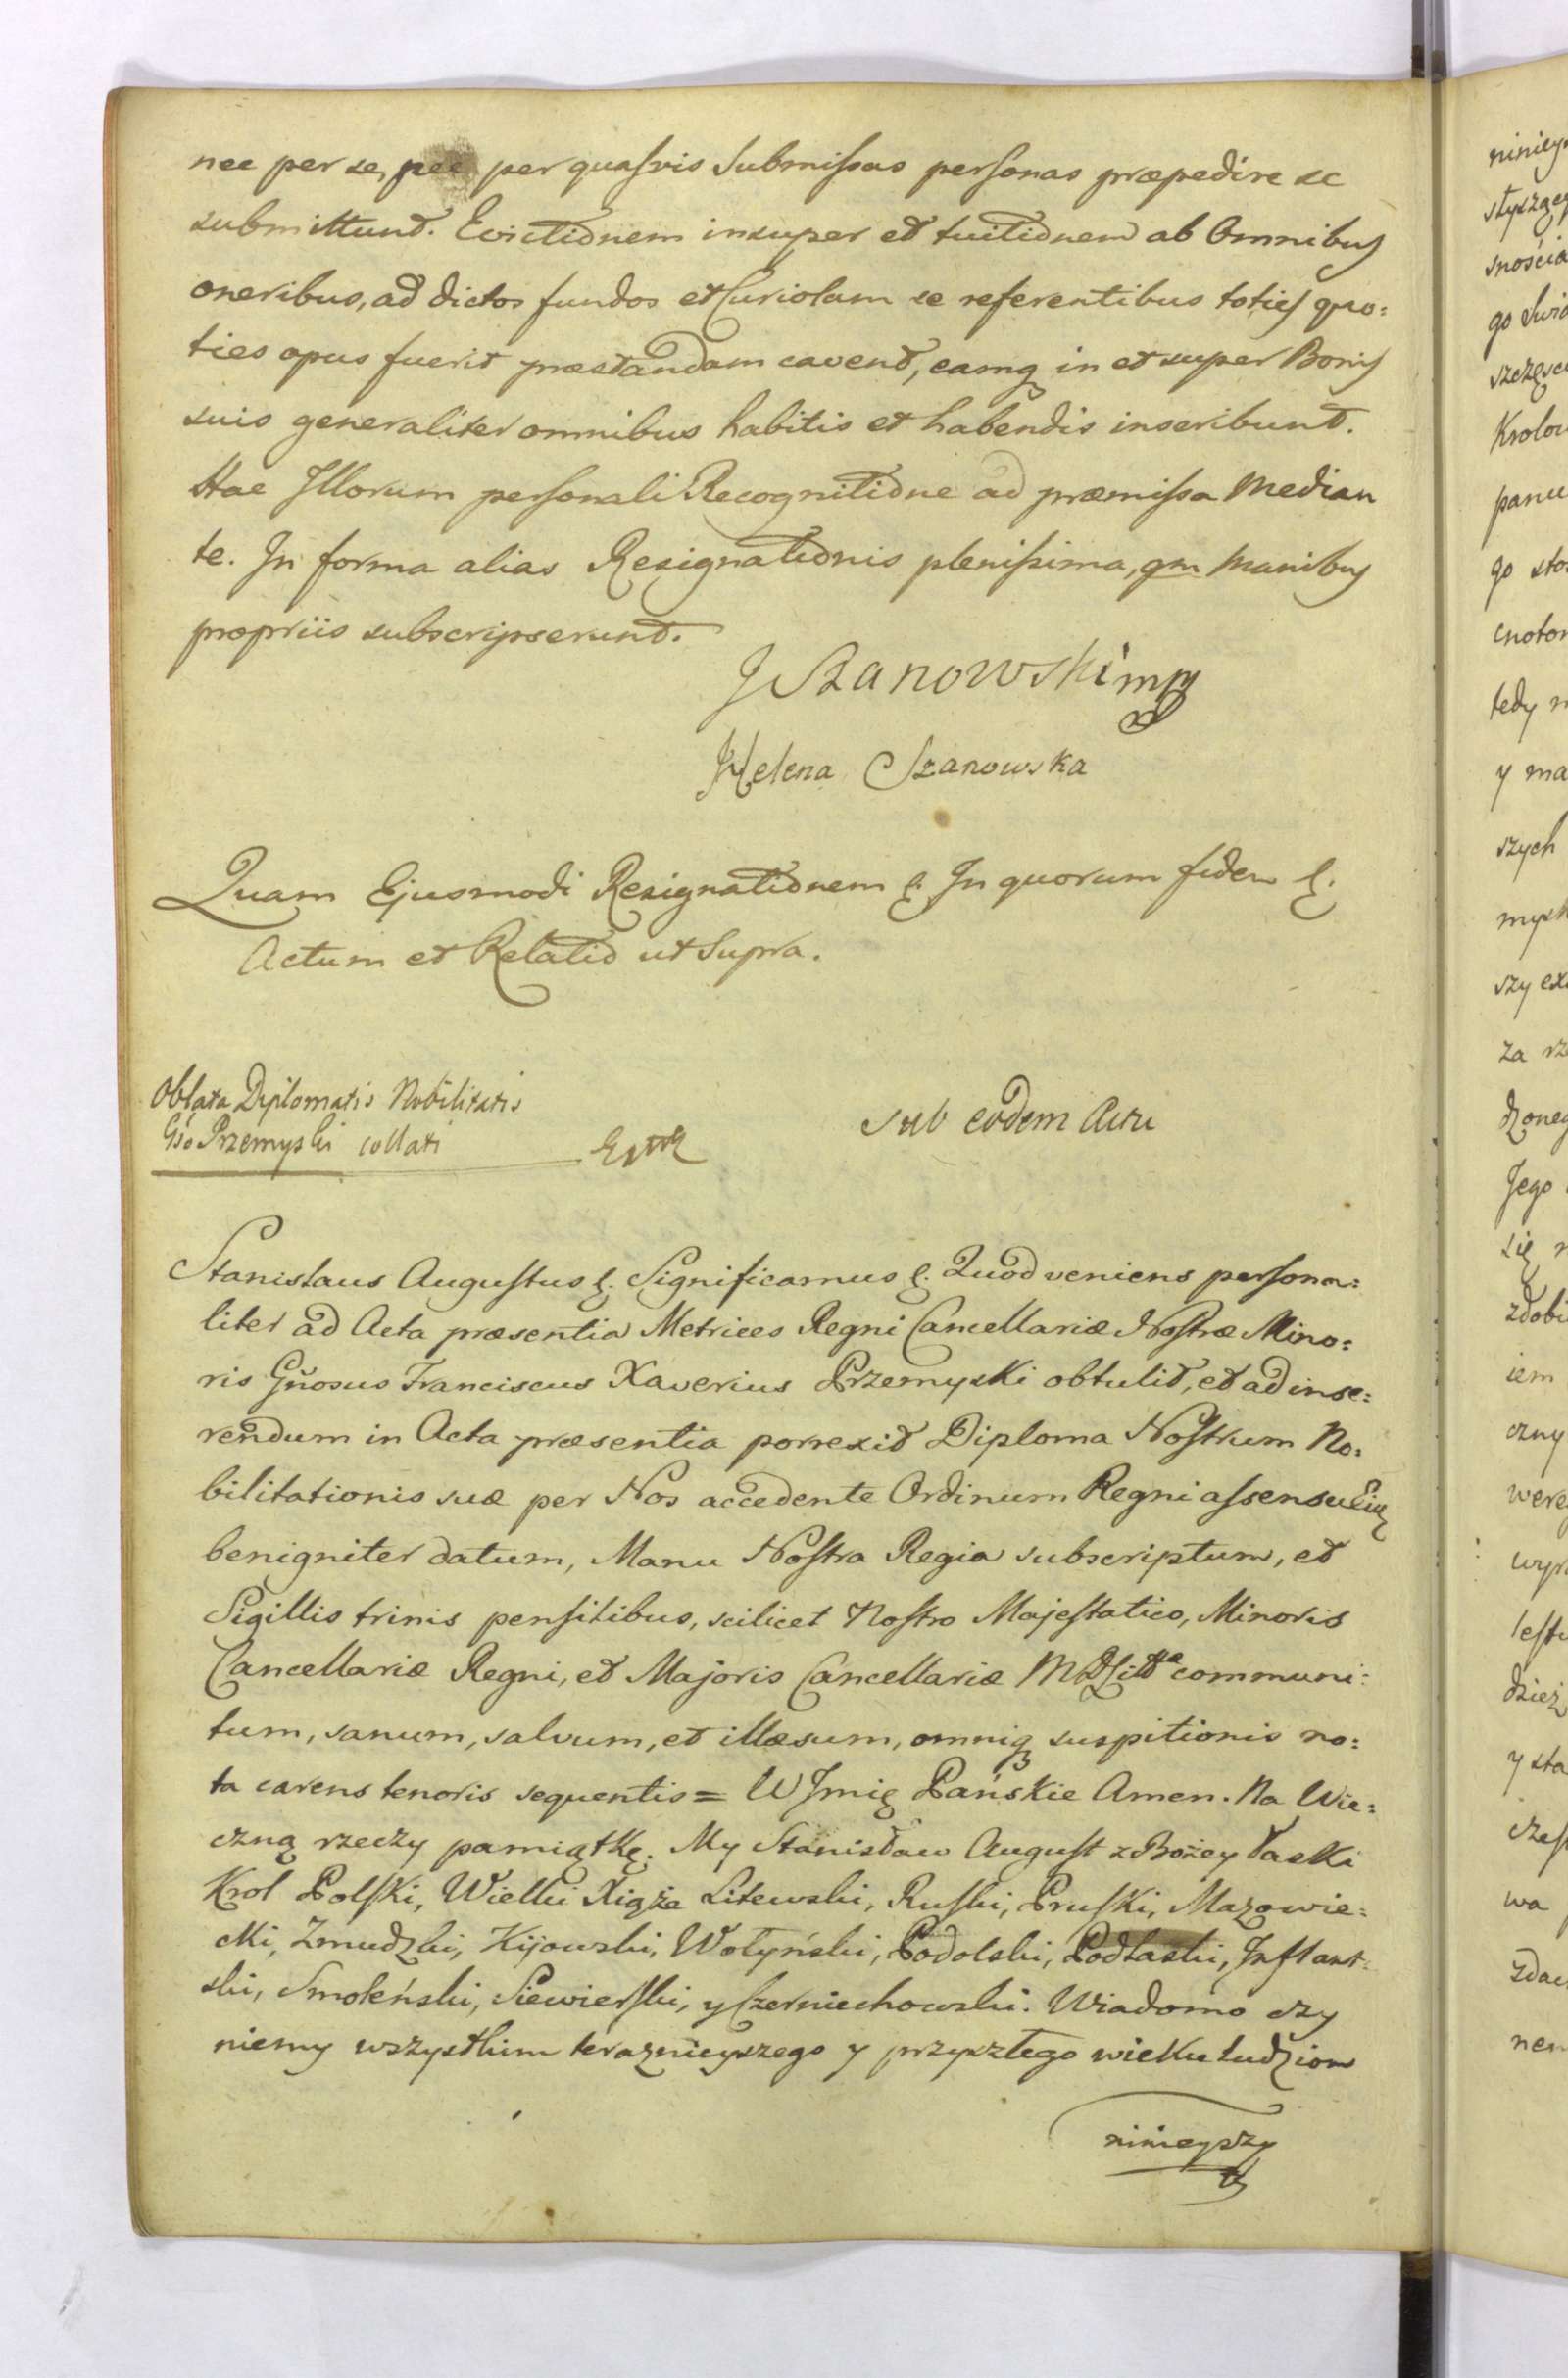 nec per se, nec per quasvis Submissas personas præpedire se
submittunt. Evictionem insuper et tuitionem ab Omnibus
oneribus, ad dictos fundos et Curiolam se referentibus toties quo:
ties opus fuerit præstandam cavent, eamq in et super Bonis
suis generaliter omnibus habitis et habendis inscribunt.
Hac Illorum personali Recognitione ad præmissa Median
te. In forma alias Resignationis plenissima, qm Manibus
propriis subscripserunt.
J Szanowski mp
Helena Szanowska
Quam Ejusmodi Resignationem &. In quorum fidem &.
Actum et Relatio ut Supra.
Oblata Diplomatis Nobilitatis
Gso Przemyski collati
Sub eodem Actu
Stanislaus Augustus &. Significamus &. Quod veniens persona:
liter ad Acta præsentia Metrices Regni Cancellariæ Nostræ Mino:
ris Gñosus Franciscus Xaverius Przemyski obtulit, et ad inse:
rendum in Acta præsentia porrexit Diploma Nostrum No:
bilitationis suæ per Nos accedente Ordinum Regni assensu Eiq
benigniter datum, Manu Nostra Regia subscriptum, et
Sigillis trinis pensilibus, scilicet Nostro Majestatico, Minoris
Cancellariæ Regni, et Majoris Cancellariæ MDLittæ communi:
tum, sanum, salvum, et illæsum, omniq suspitionis no:
ta carens tenoris sequentis = W Imię Pańskie Amen. Na Wie:
czną rzeczy pamiątkę. My Stanisław August z Bożey Łaski
Krol Polski, Wielki Xiąże Litewski, Ruski, Pruski, Mazowie:
cki, Zmudzki, Kijowski, Wołyński, Podolski, Podlaski, Inflant:
ski, Smoleński, Siewierski, y Czerniechowski. Wiadomo czy
niemy wszystkim teraznieyszego y przyszłego wieku ludziom
ninieyszy
ninieys
słyszący
snościa
go Swia
szczęsc
Krolow
panu
go sto
cnoto
tedy n
y ma
szych
mysl
szy ex
za rz
dzoneg
Jego
się n
zdobi
iem
czny
were
wyr
lest
dzież
y sta
czes
wa
zda
nem